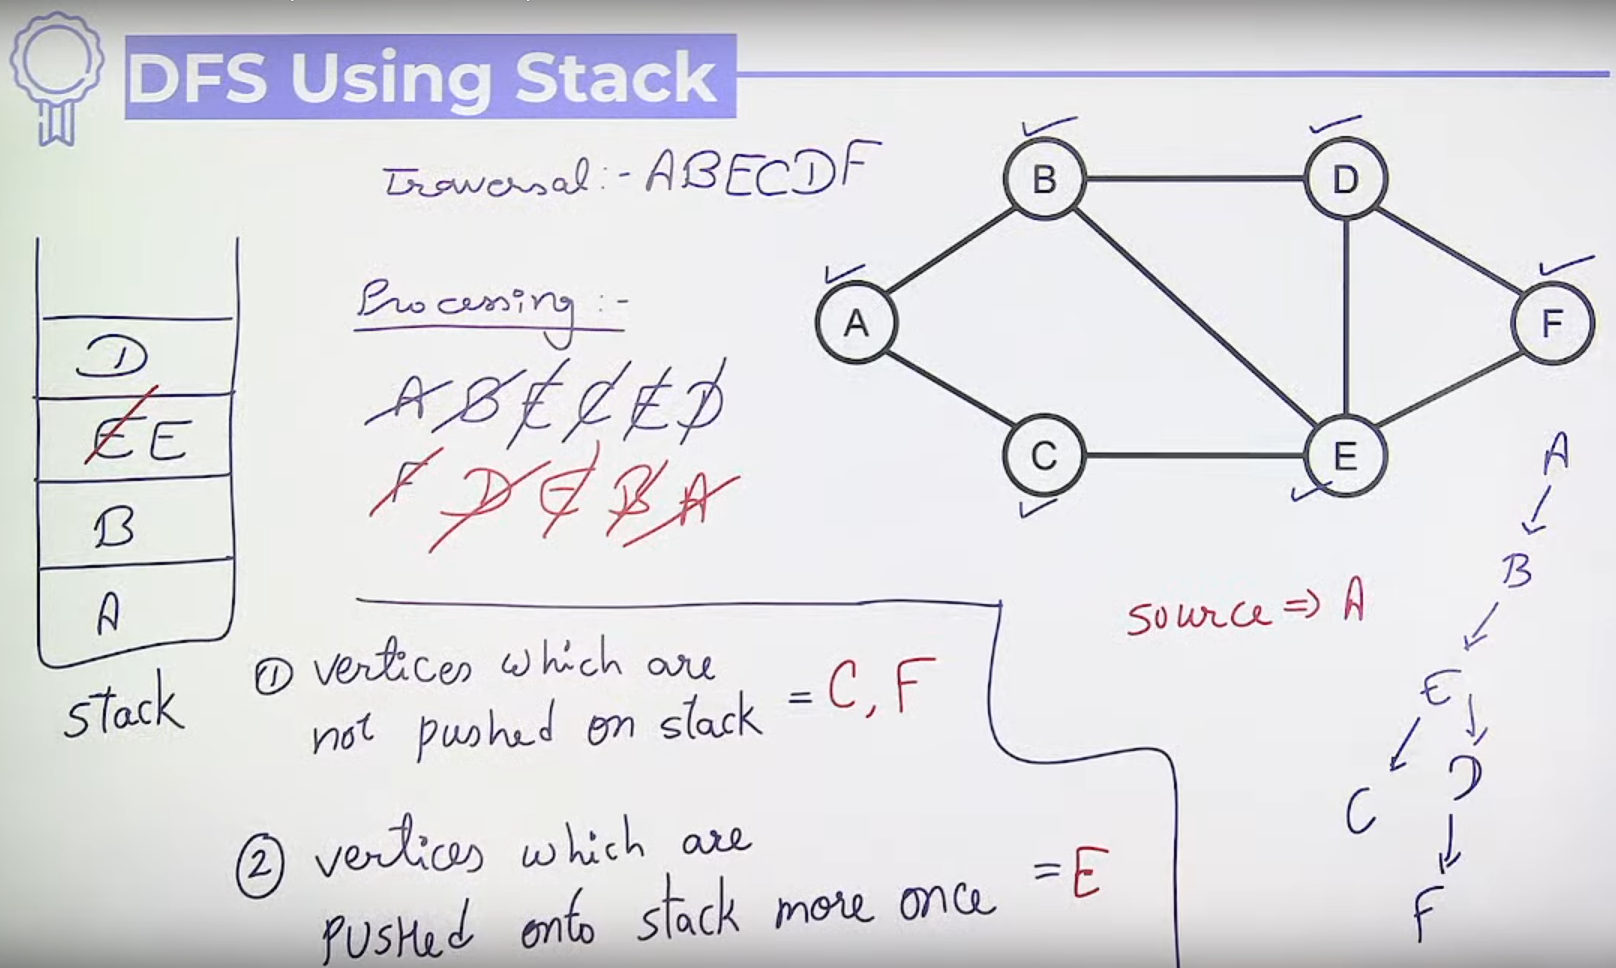 DFS Using Stack
Traversal:- ABECDF
Processing:-
A B E C E D
F D E B A
D
E E
B
A
stack
B
D
A
F
C
E
source => A
A
B
E
C D
F
① vertices which are
not pushed on stack = C, F
② vertices which are
PUSHed onto stack more once = E